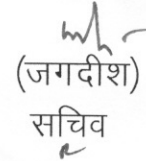 (जगदीश)
सचिव